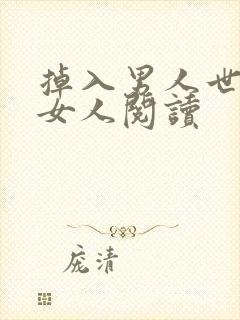 掉入男人世
女人閱讀
庞清